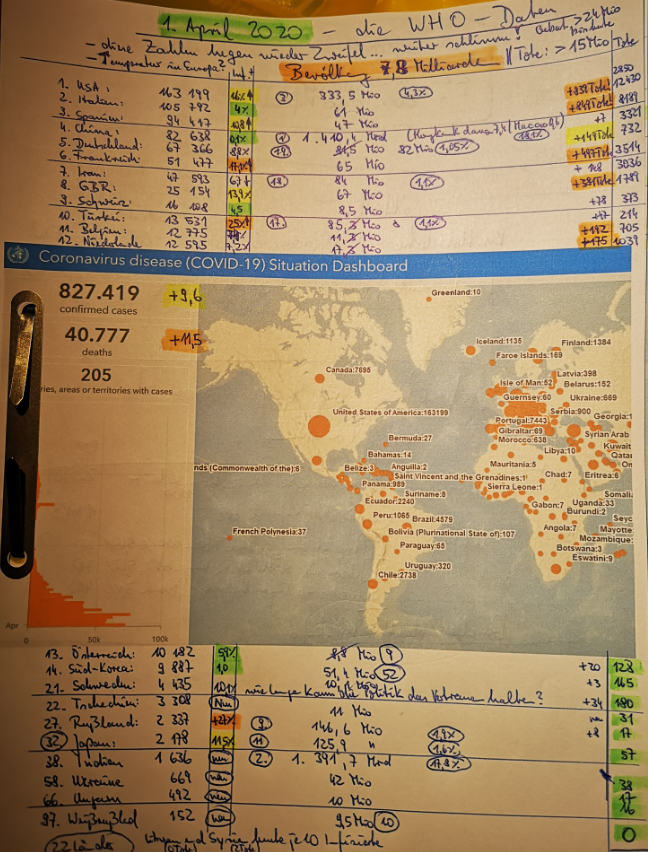 1. April 2020 – die WHO – Daten
– diese Zahlen hegen wieder Zweifel... weiter schlimm!
– Temperatur in Europa?
Bevölkg 7,8 Milliarde
Tote: > 15 Mio
Tote
2850
1. USA: 163 199 333,5 Mio 4,3% 12430
2. Italien: 105 792 4% 61 Mio +849 Tote 8189
3. Spanien: 94 417 47 Mio
4. China: 82 638 0,1% 1.410,4 Mrd +7 3321
5. Dutschland: 67 366 19. 81,5 Mio 82 Mio 1,05% 732
6. Frankreich: 51 477 65 Mio 3514
7. Iran: 47 593 67 18. 84 Mio 1,1% 3036
8. GBR: 25 154 67 Mio +381 Tote 1789
9. Schweiz: 16 108 4,5 8,5 Mio +78 373
10. Türkei: 13 531 25% 17. 85,3 Mio 1,1% 214
11. Belgien: 12 775 11,3 Mio +192 705
12. Niedelade 12 595 7,2% 17,3 Mio +175 1039
Coronavirus disease (COVID-19) Situation Dashboard
827.419 +9,6
confirmed cases
40.777 +11,5
deaths
205
ries, areas or territories with cases
Apr
0 50k 100k
Greenland:10
Iceland:1135
Finland:1384
Faroe Islands:169
Canada:7695
Latvia:398
Isle of Man:52
Belarus:152
Guernsey:60
Ukraine:669
United States of America:163199
Serbia:900
Portugal:7443
Georgia:1
Gibraltar:69
Syrian Arab
Bermuda:27
Morocco:638
Kuwait
Libya:10
Bahamas:14
Qatar
nds (Commonwealth of the):6
Belize:3
Anguilla:2
Mauritania:5
Om
Saint Vincent and the Grenadines:1
Chad:7
Eritrea:6
Panama:989
Sierra Leone:1
Suriname:8
Somali
Ecuador:2240
Gabon:7
Uganda:33
Burundi:2
Peru:1065
Brazil:4579
Seyc
French Polynesia:37
Bolivia (Plurinational State of):107
Angola:7
Mayotte
Mozambique:
Paraguay:65
Botswana:3
Eswatini:9
Uruguay:320
Chile:2738
13. Österreich: 10 182 8,8 Mio 9 128
14. Süd-Korea: 9 887 1,0 51,4 Mio 52 +20 165
21. Schweden: 4 435 10,1 Mio +3
wie lange kann die Politik das Vertrauen halten?
22. Tschechien: 3 308 neu 11 Mio +34 180
27. Rußland: 2 337 +27% 9. 146,6 Mio 1,9% 31
32. Japan: 2 178 11,5% 11. 125,9 " 1,6% +8 17
38. Indien 1 636 neu 2. 1.391,7 Mrd 17,8% 57
58. Ukraine 669 neu 42 Mio 38
66. Ungarn 492 neu 10 Mio 17
16
97. Weißrußld 152 neu 9,5 Mio 10
22 Länder
Libyen und Syrien heute je 10 Infizierte 0